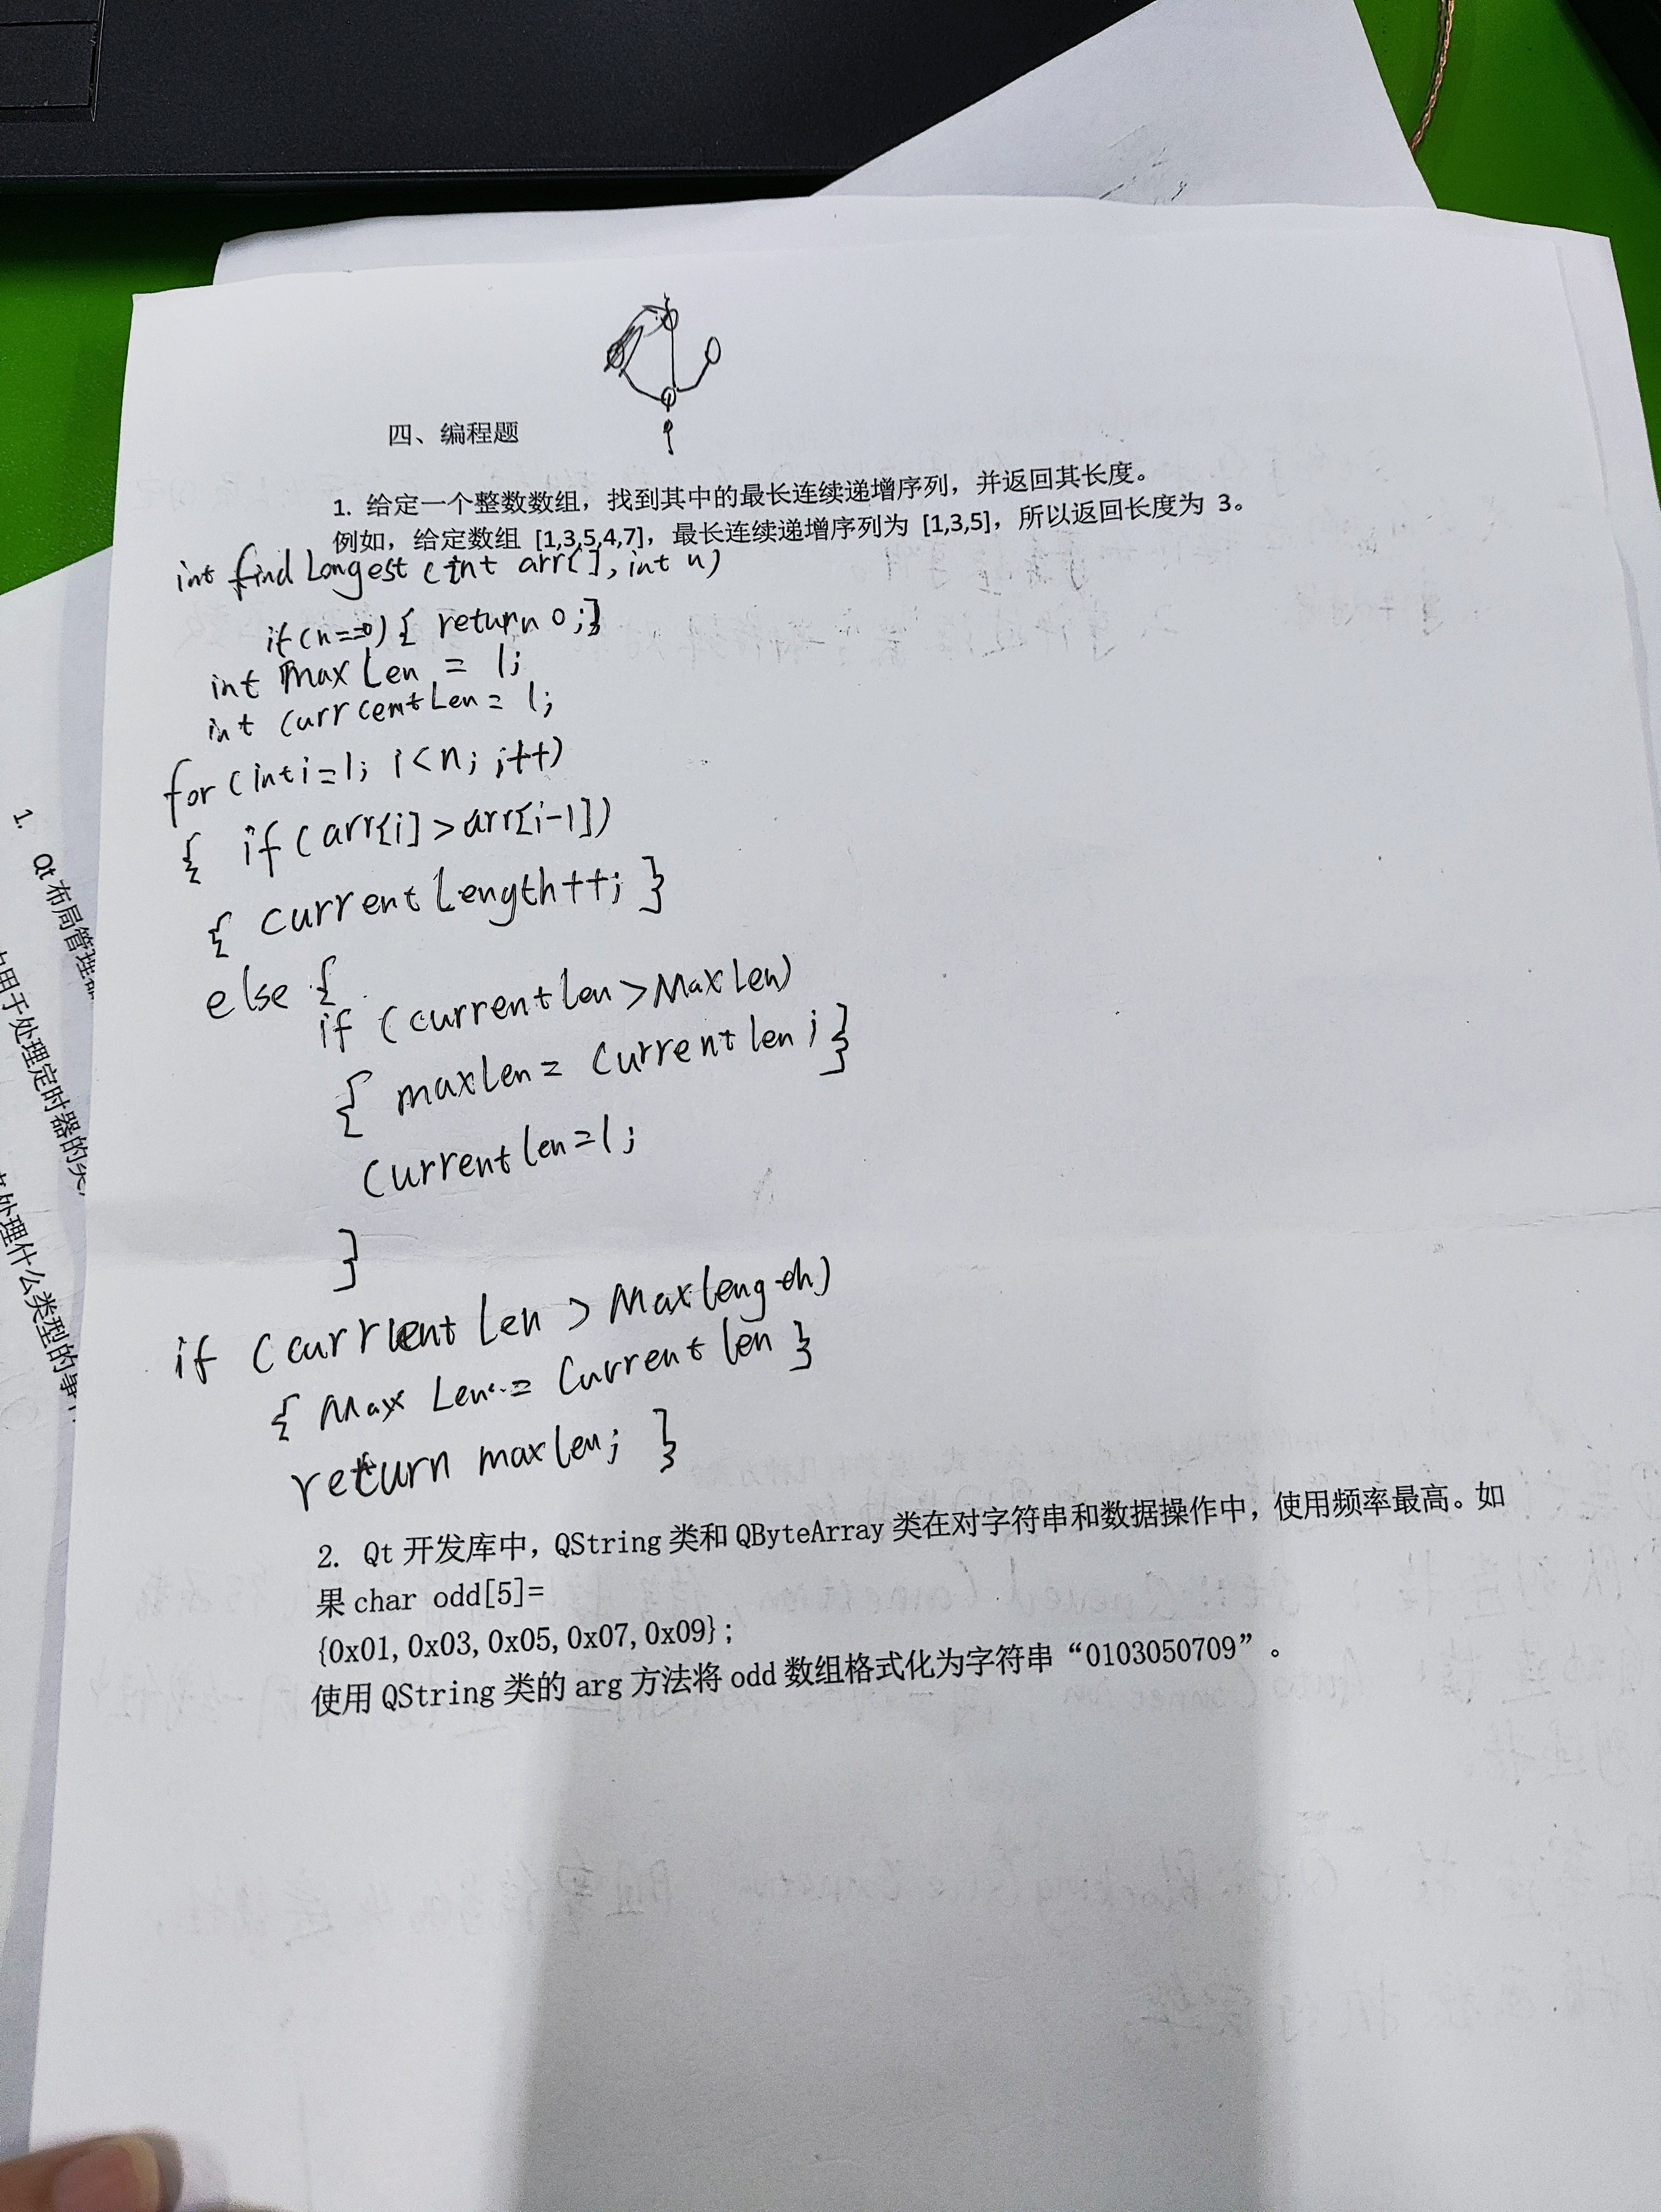 四、编程题
1. 给定一个整数数组，找到其中的最长连续递增序列，并返回其长度。
例如，给定数组 [1,3,5,4,7]，最长连续递增序列为 [1,3,5]，所以返回长度为 3。
int find Longest (int arr[], int n)
if(n==0) { return 0;}
int max Len = 1;
int currentLen = 1;
for (int i=1; i<n; i++)
{ if (arr[i] > arr[i-1])
{ current Length++; }
else {
if (current len > Max Len)
{ maxLen = Current len; }
Current len = 1;
}
if (current Len > Max length)
{ Max Len = Current len }
return max len; }
2. Qt 开发库中，QString 类和 QByteArray 类在对字符串和数据操作中，使用频率最高。如
果 char odd[5]=
{0x01, 0x03, 0x05, 0x07, 0x09};
使用 QString 类的 arg 方法将 odd 数组格式化为字符串“0103050709”。
1. Qt 布局管理
用于处理定时器的类
处理什么类型的事